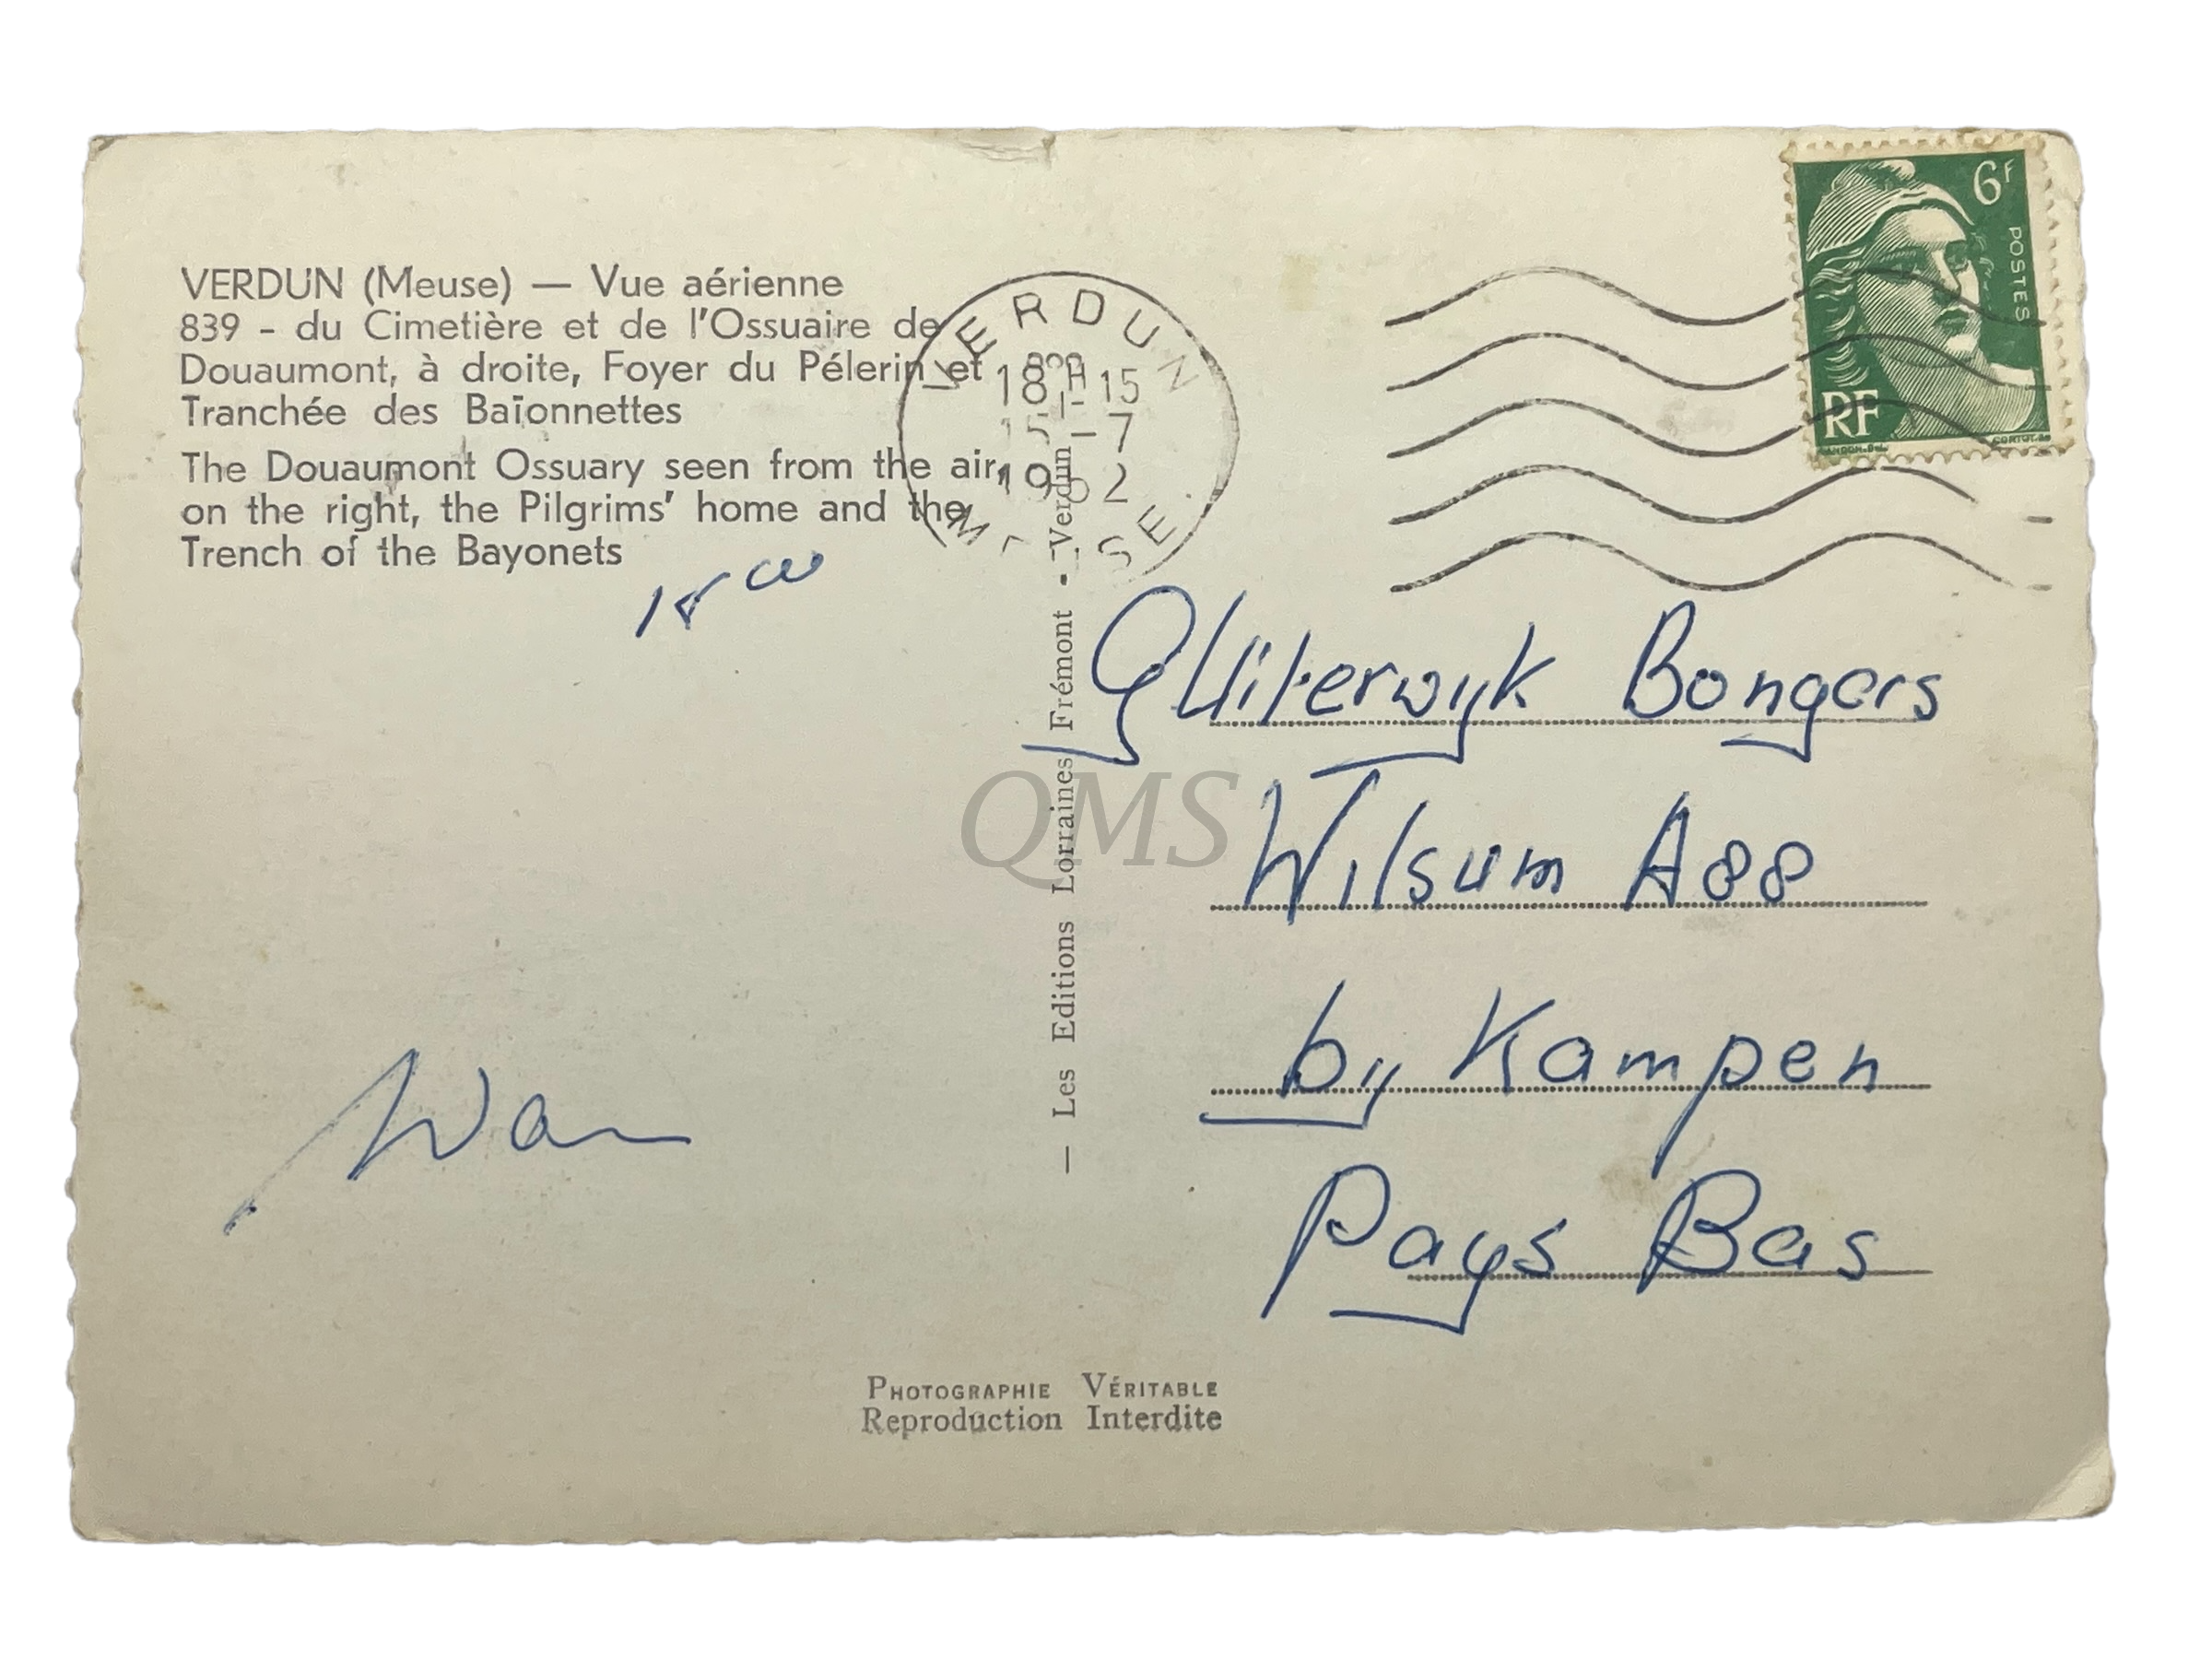 VERDUN (Meuse) — Vue aérienne
839 - du Cimetière et de l'Ossuaire de
Douaumont, à droite, Foyer du Pélerin et
Tranchée des Baïonnettes
The Douaumont Ossuary seen from the air,
on the right, the Pilgrims' home and the
Trench of the Bayonets
VERDUN
18H15
15-7
19 2
M SE
6F
POSTES
RF
— Les Editions Lorraines Frémont • Verdun
G Uiterwyk Bongers
Wilsum A88
by Kampen
Pays Bas
QMS
Wan
PHOTOGRAPHIE VÉRITABLE
Reproduction Interdite